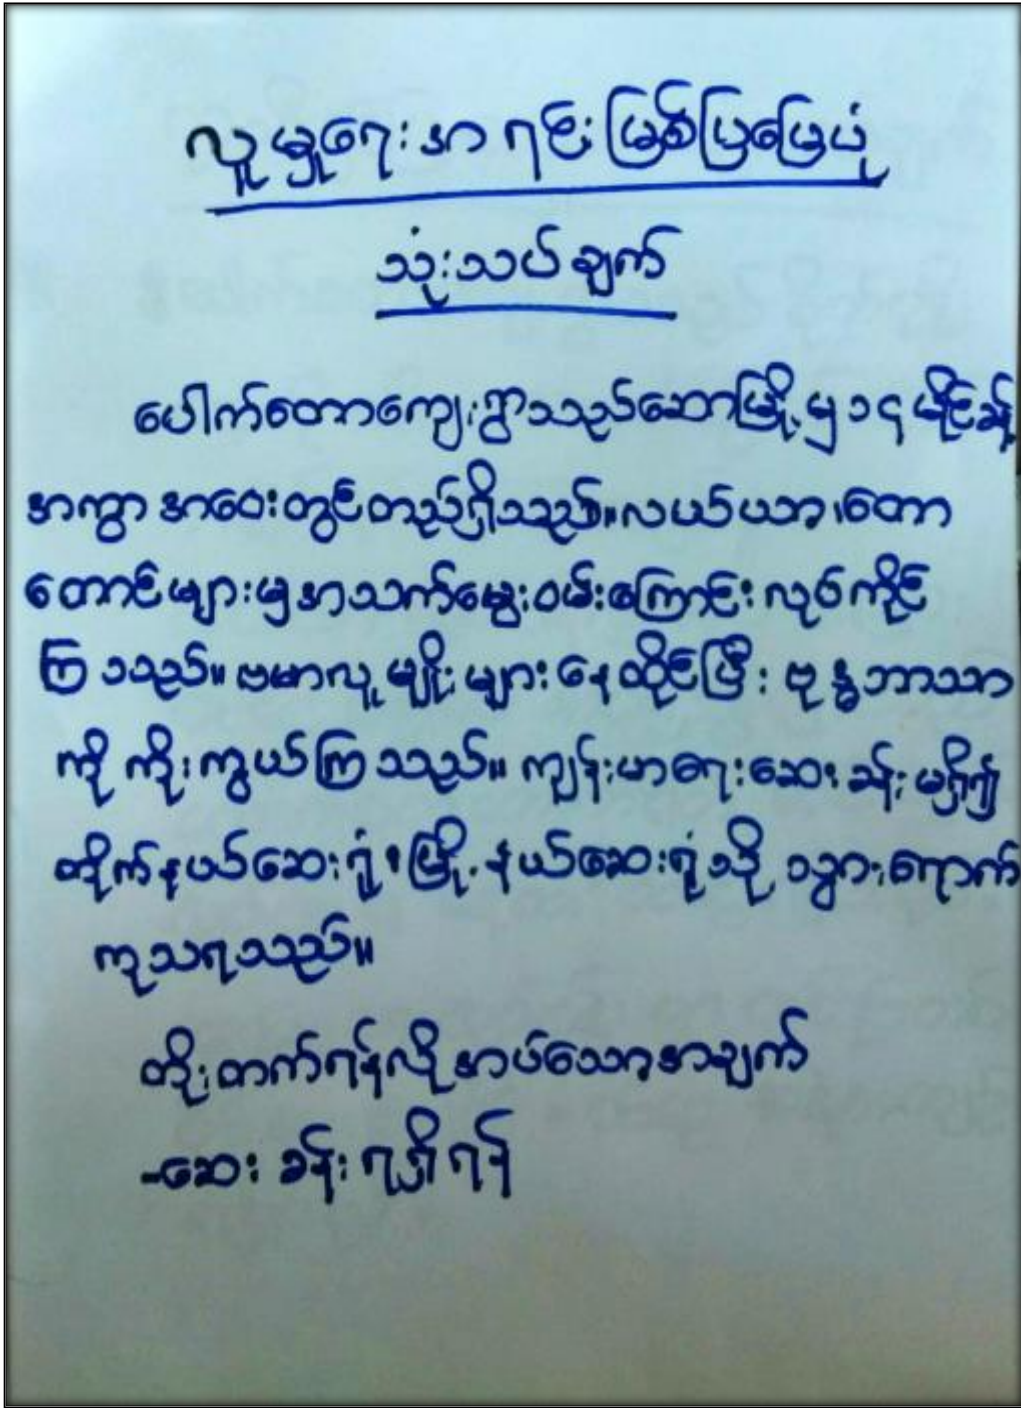 လူမှုရေးအရင်းမြစ်ပြမြေပုံ
သုံးသပ်ချက်
ပေါက်တောကျေးရွာသည်ဆောမြို့မှ ၁၄ မိုင်ခန့်
အကွာအဝေးတွင်တည်ရှိသည်။လယ်ယာ၊တော
တောင်များမှအသက်မွေးဝမ်းကြောင်းလုပ်ကိုင်
ကြသည်။ဗမာလူမျိုးများနေထိုင်ပြီးဗုဒ္ဓဘာသာ
ကိုကိုးကွယ်ကြသည်။ကျန်းမာရေးဆေးခန်းမရှိ၍
တိုက်နယ်ဆေးရုံ၊မြို့နယ်ဆေးရုံသို့သွားရောက်
ကုသရသည်။
တိုးတက်ရန်လိုအပ်သောအချက်
-ဆေးခန်းရရှိရန်